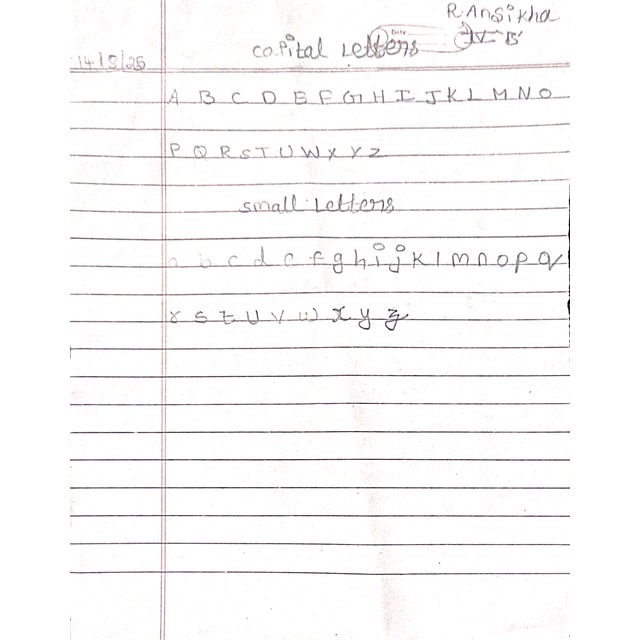 R. Ansikha
Date
IV - B
capital Letters
14/8/25
A B C D E F G H I J K L M N O
P Q R S T U W X Y Z
small Letters
a b c d e f g h i j k l m n o p q
r s t u v w x y z